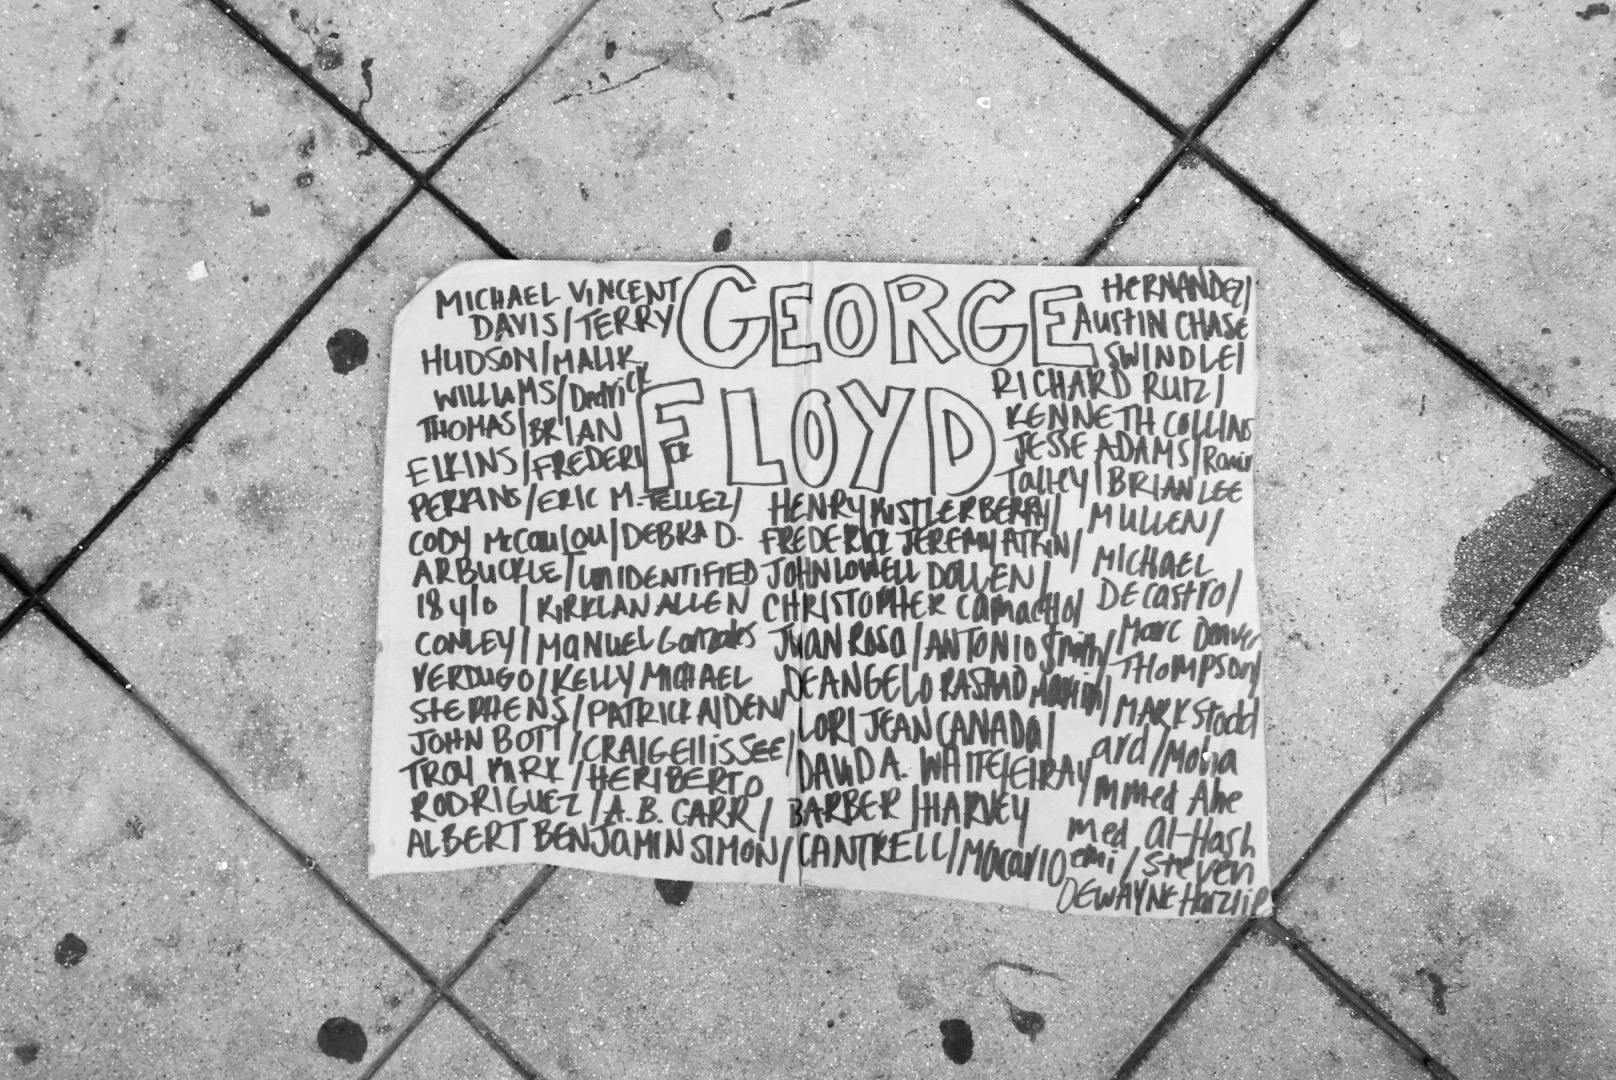 GEORGE
FLOYD
MICHAEL VINCENT
DAVIS/TERRY
HUDSON/MALIK
WILLIAMS/Dedrick
THOMAS/BRIAN
ELKINS/FREDERICK
PERKINS/ERIC M. TELLEZ/
CODY McCOULOU/DEBRA D.
ARBUCKLE/UNIDENTIFIED
18 y/o / KIRKLAN ALLEN
CONLEY/MANUEL Gonzales
VERDUGO/KELLY MICHAEL
STEPHENS/PATRICK AIDEN/
JOHN BOTT/CRAIG ELLIS SEE/
TROY KIRK/HERIBERTO
RODRIGUEZ/A.B. CARR/
ALBERT BENJAMIN SIMON/
HENRY KISTLER BERRY/
FREDERICK JEREMY ATKIN/
JOHN LOWELL DOLLEN/
CHRISTOPHER Camacho/
JUAN ROSA/ANTONIO Smith/
DEANGELO RASHAD
LORI JEAN CANADA/
DAVID A. WHITE/ELRAY
BARBER/HARVEY
CANTRELL/Macario
HERNANDEZ/
AUSTIN CHASE
SWINDLE/
RICHARD RUIZ/
KENNETH COLLINS
JESSE ADAMS/
Talley/BRIAN LEE
MULLEN/
MICHAEL
DECastro/
Marc Denver
THOMPSON/
MARK Stodd
ard/Moha
mmed Ahe
med al-Hash
emi/Steven
DEWAYNE Harzlip